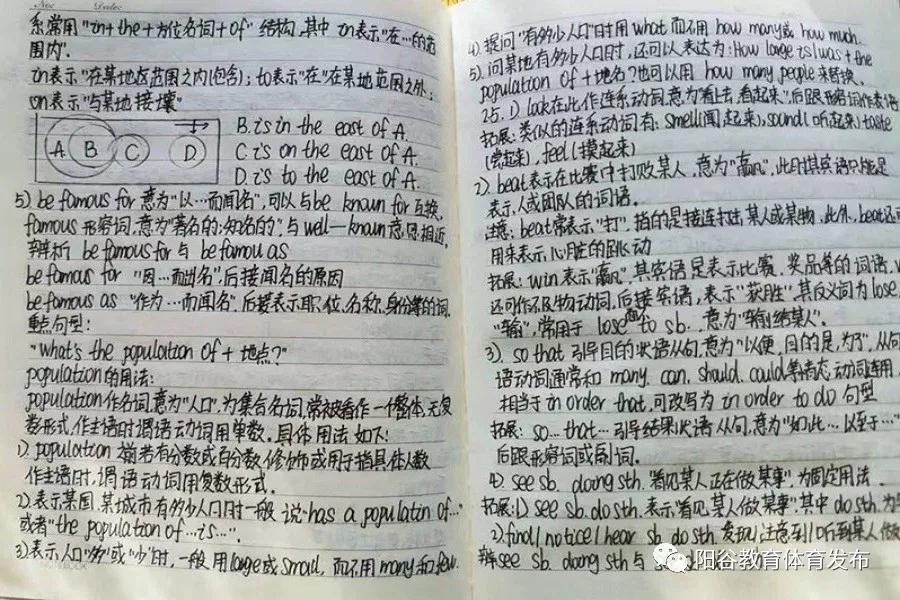 No:
Date:
系常用"in+the+方位名词+of"结构,其中in表示"在…的范
围内".
in表示"在某地区范围之内(包含);to表示"在"在某地范围之外;
on表示"与某地接壤"
A B C D
B.is in the east of A.
C is on the east of A.
D.is to the east of A.
5) be famous for 意为"以…而闻名",可以与be known for互换.
famous 形容词,意为"著名的;知名的",与well—known意思相近,
辨析 be famous for 与 be famou as
be famous for "因…而出名",后接闻名的原因
be famous as "作为…而闻名"后接表示职位,名称,身份等的词.
重点句型:
"what's the population of + 地点?"
population的用法:
population作名词,意为"人口",为集合名词,常被看作一个整体,无复
数形式,作主语时谓语动词用单数.具体用法如下:
1) population 前若有分数或百分数修饰或用于指具体人数
作主语时,谓语动词用复数形式.
2)表示某国,某城市有的多少人口时一般 说"has a populatin of…"
或者"the population of…is…".
3)表示人口"多"或"少"时,一般用large或small,而不用many和few.
4).提问"有多少人口"时用what 而不用 how many或 how much.
5).问某地有多少人口时,还可以表达为:How large is/was + the
population of +地名?也可以用 how many people来替换.
25. 1) look在此作连系动词,意为"看上去,看起来",后跟形容词作表语
拓展:类似的连系动词有: smell(闻起来),sound(听起来) taste
(尝起来), feel(摸起来)
2) beat表示在比赛中打败某人,意为"赢",此时其宾语只能是
表示人或团队的词语.
注意:beat常表示"打",指的是接连打击,某人或某物,此外,beat还可
用来表示心脏的跳动
拓展: win 表示"赢",其宾语是表示比赛,奖品等的词语,
还可作不及物动词,后接宾语,表示"获胜",其反义词为 lose
"输",常用于 lose to sb. 意为"输给某人".
3). so that 引导目的状语从句,意为"以便,目的是,为了",从句
语动词通常和 many. can. should. could等情态动词连用,
相当于 in order that,可改写为 in order to do 句型
拓展: so…that…引导结果状语从句,意为"如此…以至于…"
后跟形容词或副词.
4) see sb. doing sth. "看见某人正在做某事",为固定用法.
拓展:1) see sb. do sth.表示"看见某人做某事".其中 do sth.为
2) find / notice / hear sb. do sth. 发现/注意到/听到某人做
辨see sb. doing sth 与
阳谷教育体育发布